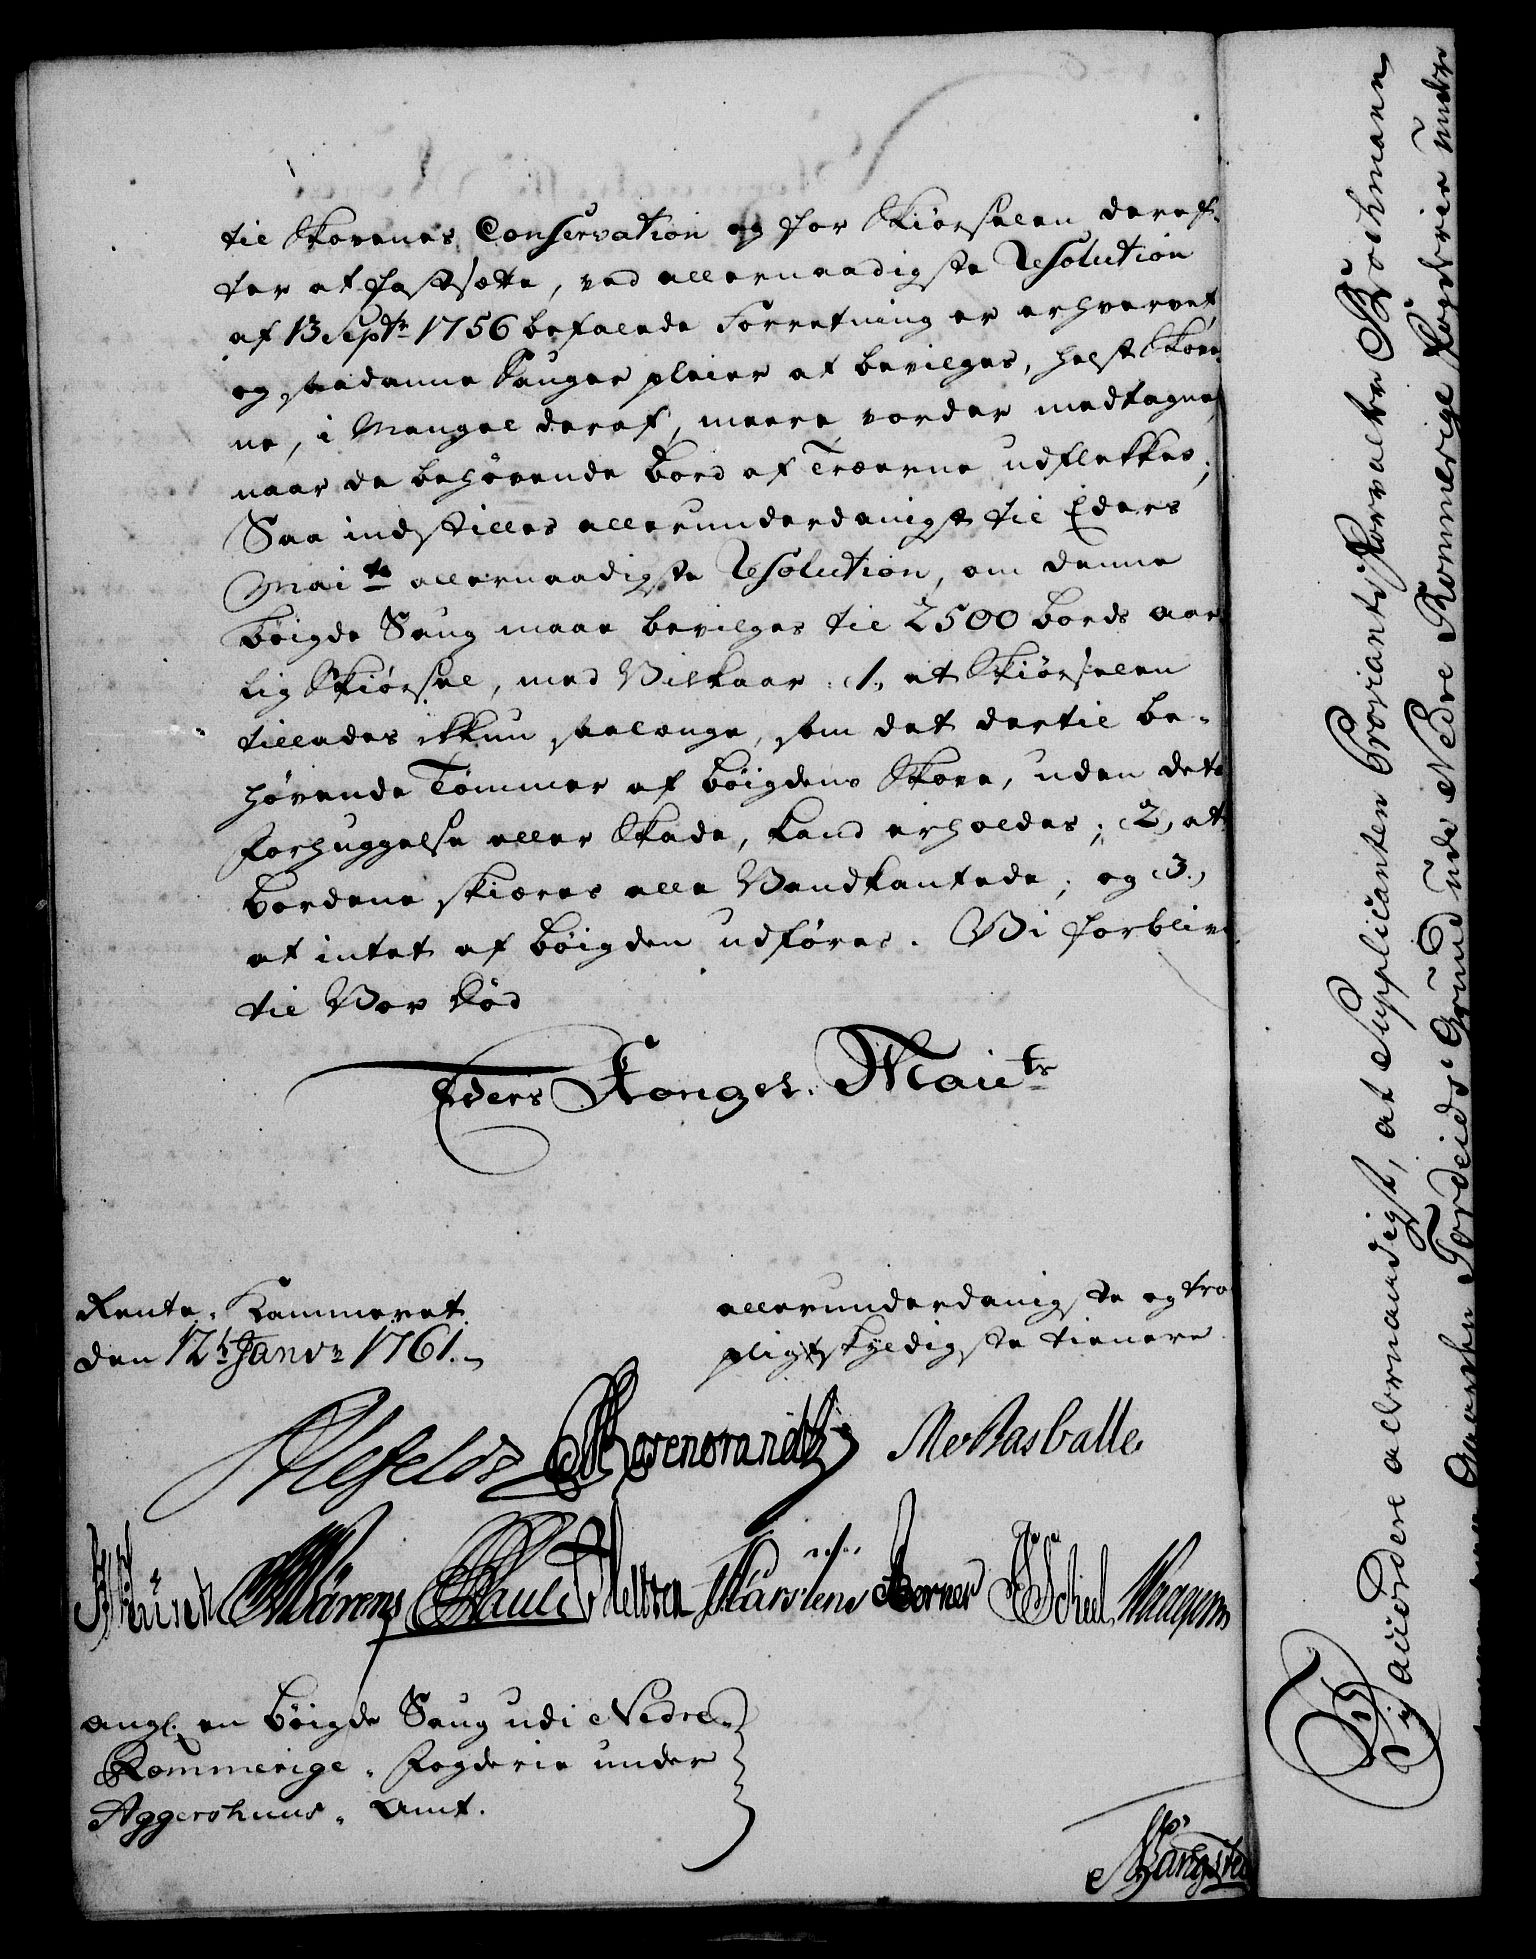 til Skovenes Conservation og for Skiørselen deref-
ter at fastsætte, ved allernaadigste Resolution
af 13 Septr 1756 befalede Forretning er erhvervet,
og saadanne Sauger pleier at bevilges, helst Skove-
ne, i Mangel deraf, meere vorder medtagne,
naar de behøvende Bord af Træerne udflekkes;
Saa indstilles allerunderdanigst til Eders
Maits allernaadigste Resolution, om denne
Bøigde Saug maae bevilges til 2500 Bords aar
lig Skiørsel, med Vilkaar: 1, at Skiørselen
tillades ikkun saalænge, som det dertil be-
høvende Tømmer af Bøigdens Skove, uden dets
Forhuggelse eller Skade, kand erholdes; 2, at
Bordene skiæres alle Vandkantede; og 3.,
at intet af Bøigden udføres. Vi forblive
til Vor Død
Eders Konges. Maits
Rente-Kammeret
den 12t Janvr 1761.
allerunderdanigste og tro
pligtskyldigste tienere
Ahlefeldt Rosenbrandtz
Wärens Pauli Heltzen Karstens Berner Scheel
angl. en Bøigde Saug udi Nedre-
Rommerige-Fogderie under
Aggershuus-Amt.
Bangsted
Bifaldere allernaadigst, at Supplicanten Proviantskforvalter Bochmann
Gaarden Tordeids Grund udi Nedre Rommerige Fogderie under